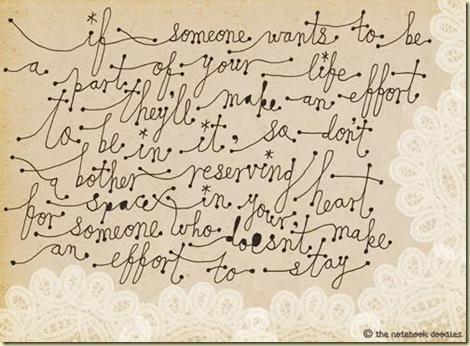 if someone wants to be
a part of your life
they'll make an effort
to be in it, so don't
a bother reserving
space in your heart
for someone who doesn't make
an effort to stay
© the notebook doodles